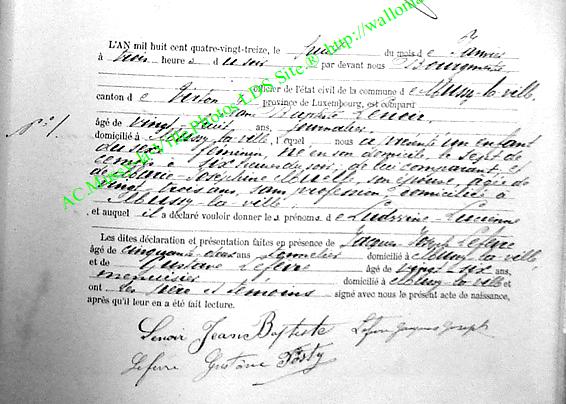 L'AN mil huit cent quatre-vingt-treize, le huit du mois de Janvier
à trois heures du soir par devant nous Bourgmestre
officier de l'état civil de la commune de Mussy-la-ville,
canton de Virton province de Luxembourg, est comparu
Jean Baptiste Lenoir,
N° 1.
âgé de vingt huit ans, journalier,
domicilié à Mussy-la-ville, lequel nous a présenté un enfant
du sexe féminin, né en son domicile, le sept de
ce mois à six heures du soir, de lui comparant, et
de Marie Josephine son épouse, âgée de
vingt trois ans, sans profession, domiciliée à
Mussy-la-ville
et auquel il a déclaré vouloir donner les prénoms de Lucienne
Les dites déclaration et présentation faites en présence de Jacques Joseph Lefèvre
âgé de cinquante deux ans domicilié à Mussy-la-ville
et de Gustave Lefèvre âgé de vingt six ans,
menuisier domicilié à Mussy-la-ville et
ont les père et témoins signé avec nous le présent acte de naissance,
après qu'il leur en a été fait lecture.
Lenoir Jean Baptiste Lefèvre Jacques Joseph
Lefèvre Gustave
AC Mussy-la-Ville Photos LDS Site ® http://wallonia